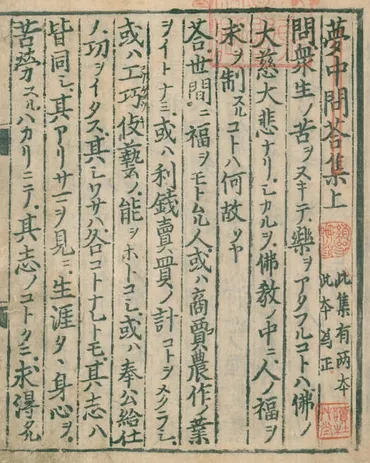 夢中問荅集上
此集有両本
此本為正
問衆生ノ苦ヲヌキテ樂ヲアタフルコトハ佛ノ
大慈大悲ナリシカルヲ佛教ノ中ニ人ノ福ヲ
求ヲ制スルコトハ何故ソヤ
荅世間ニ福ヲモトムル人或ハ商賈農作ノ業
ヲイトナミ或ハ利錢賣買ノ計コトヲメクラシ
或ハ工巧伎藝ノ能ヲホトコシ或ハ奉公給仕
ノ功ヲイタス其シワサハ各コトナレトモ其志ハ
皆同シ其アリサマヲ見ニ生涯タヽ身心ヲ
苦勞スルハカリニテ其志ノコトクニ求得タル